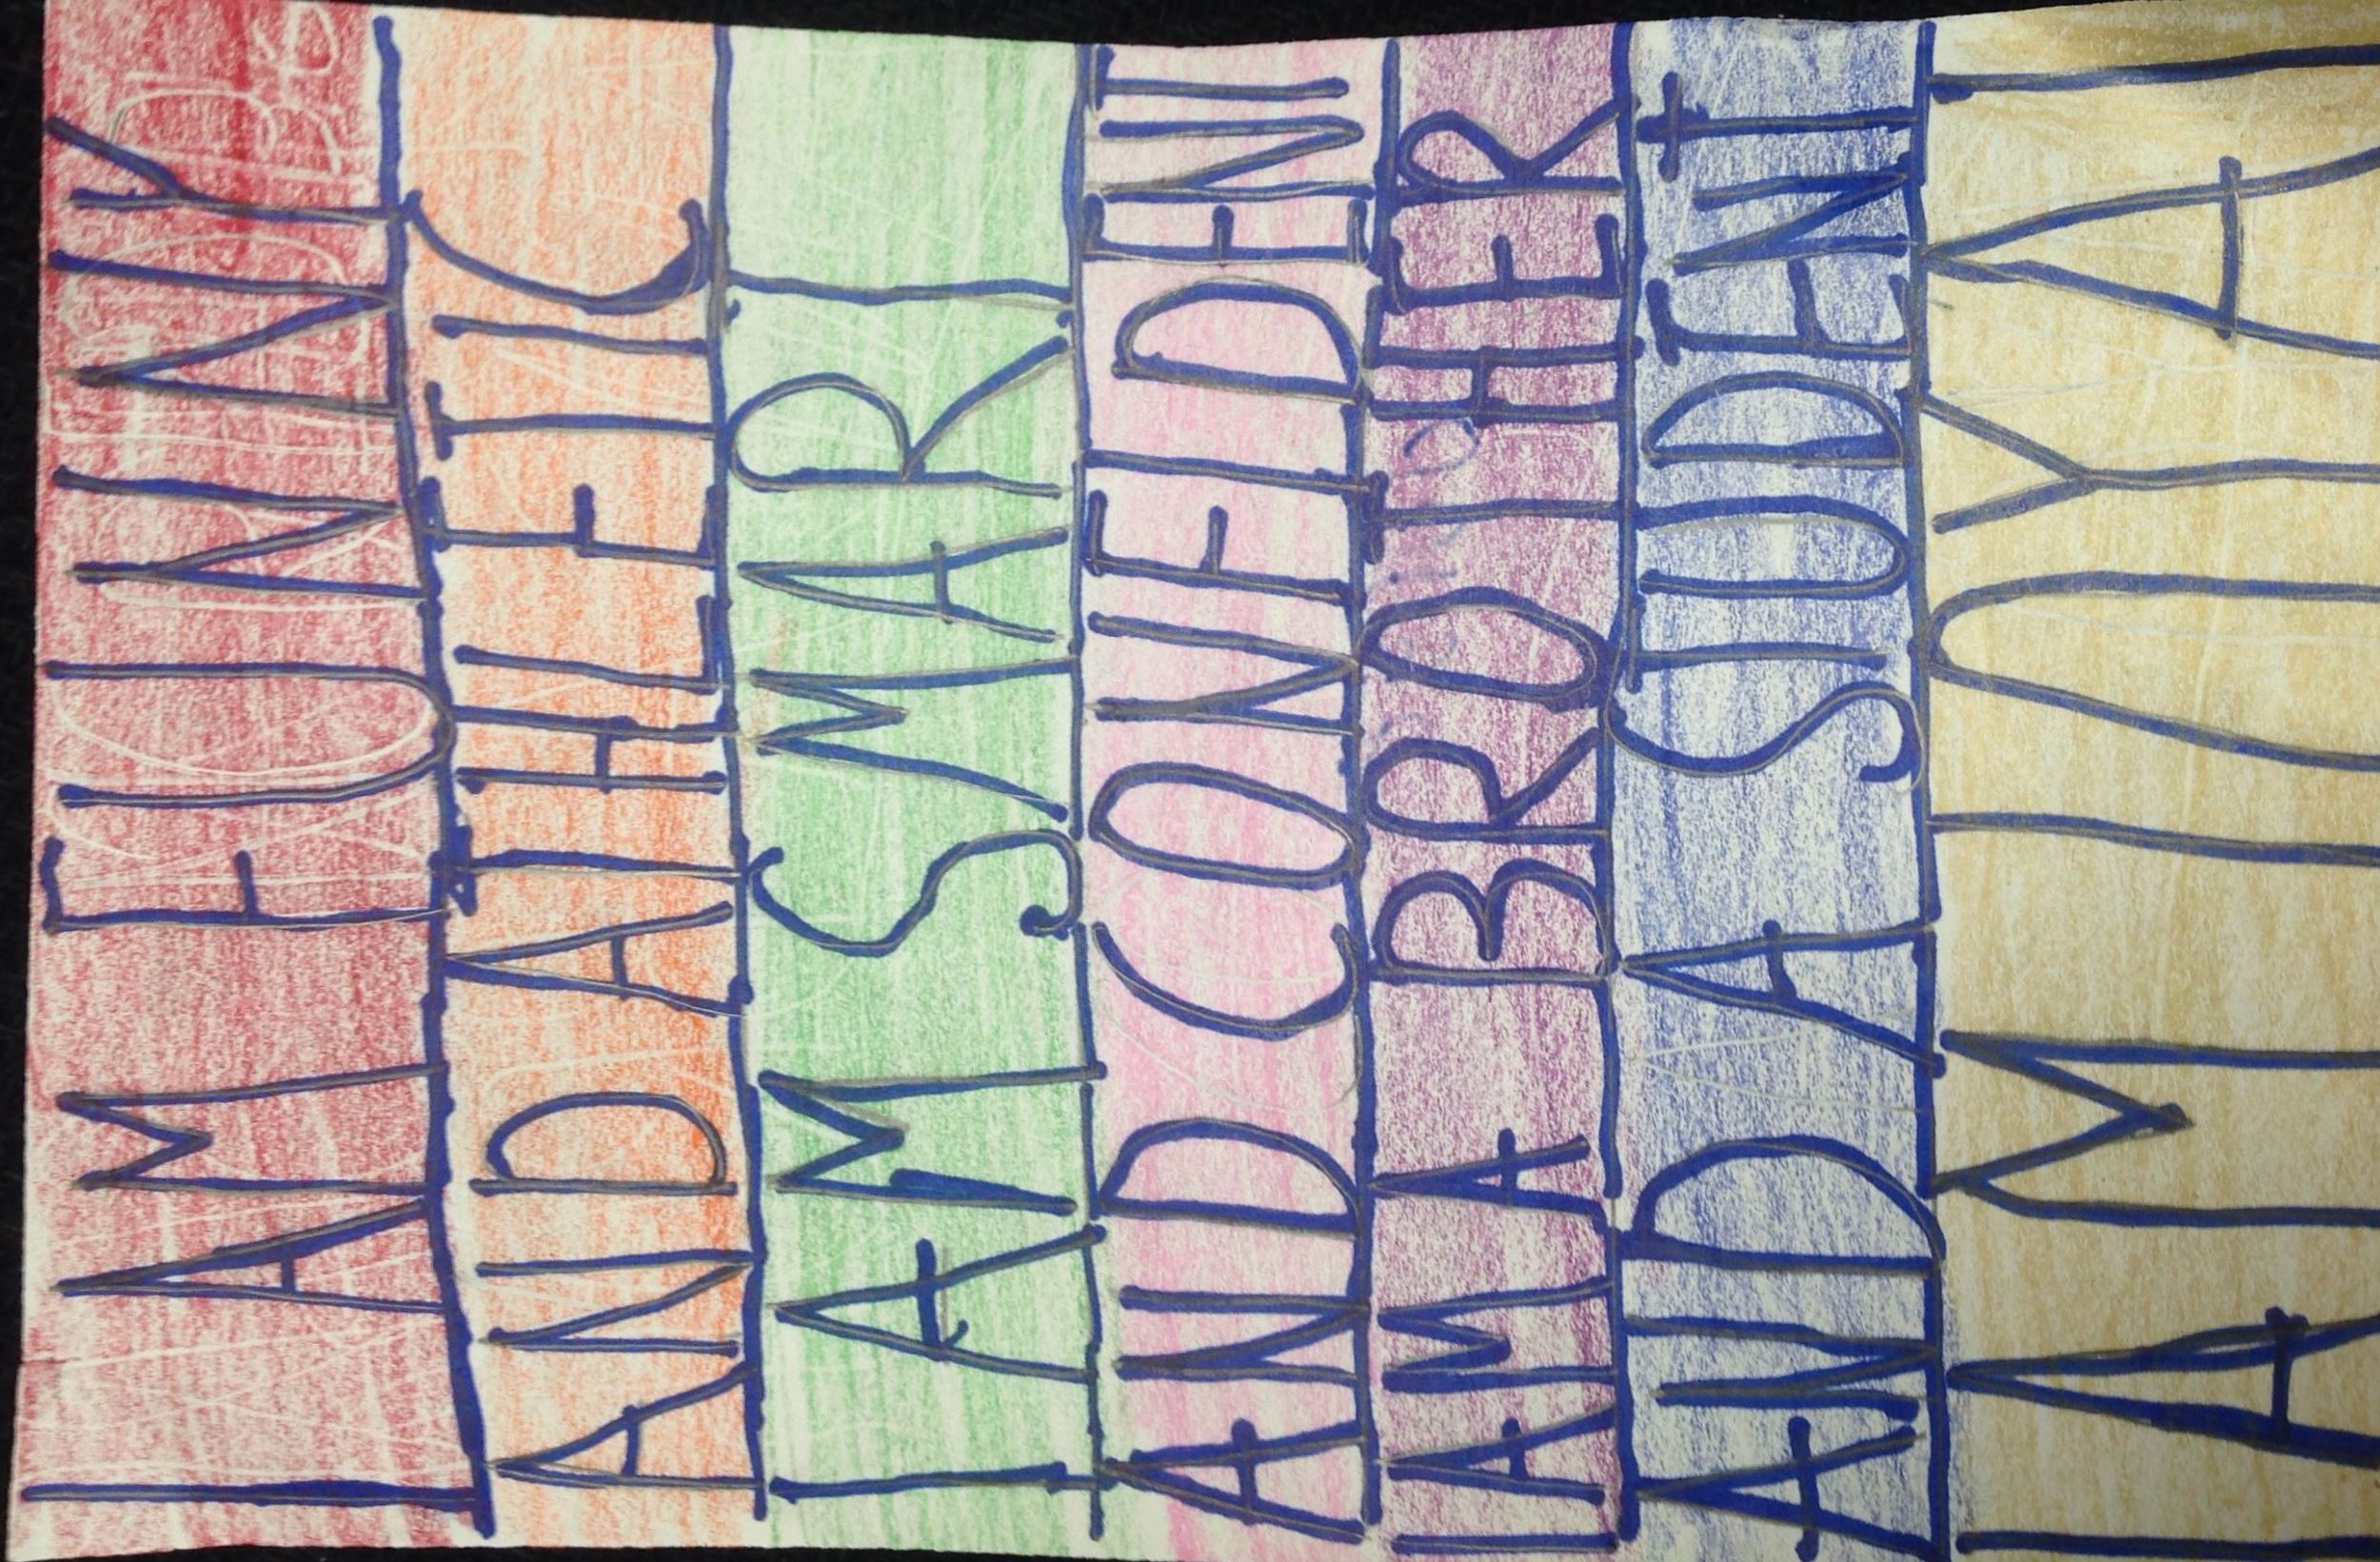 I AM FUNNY
AND ATHLETIC
I AM SMART
AND CONFIDENT
I AM A BROTHER
AND A STUDENT
I AM LOYAL